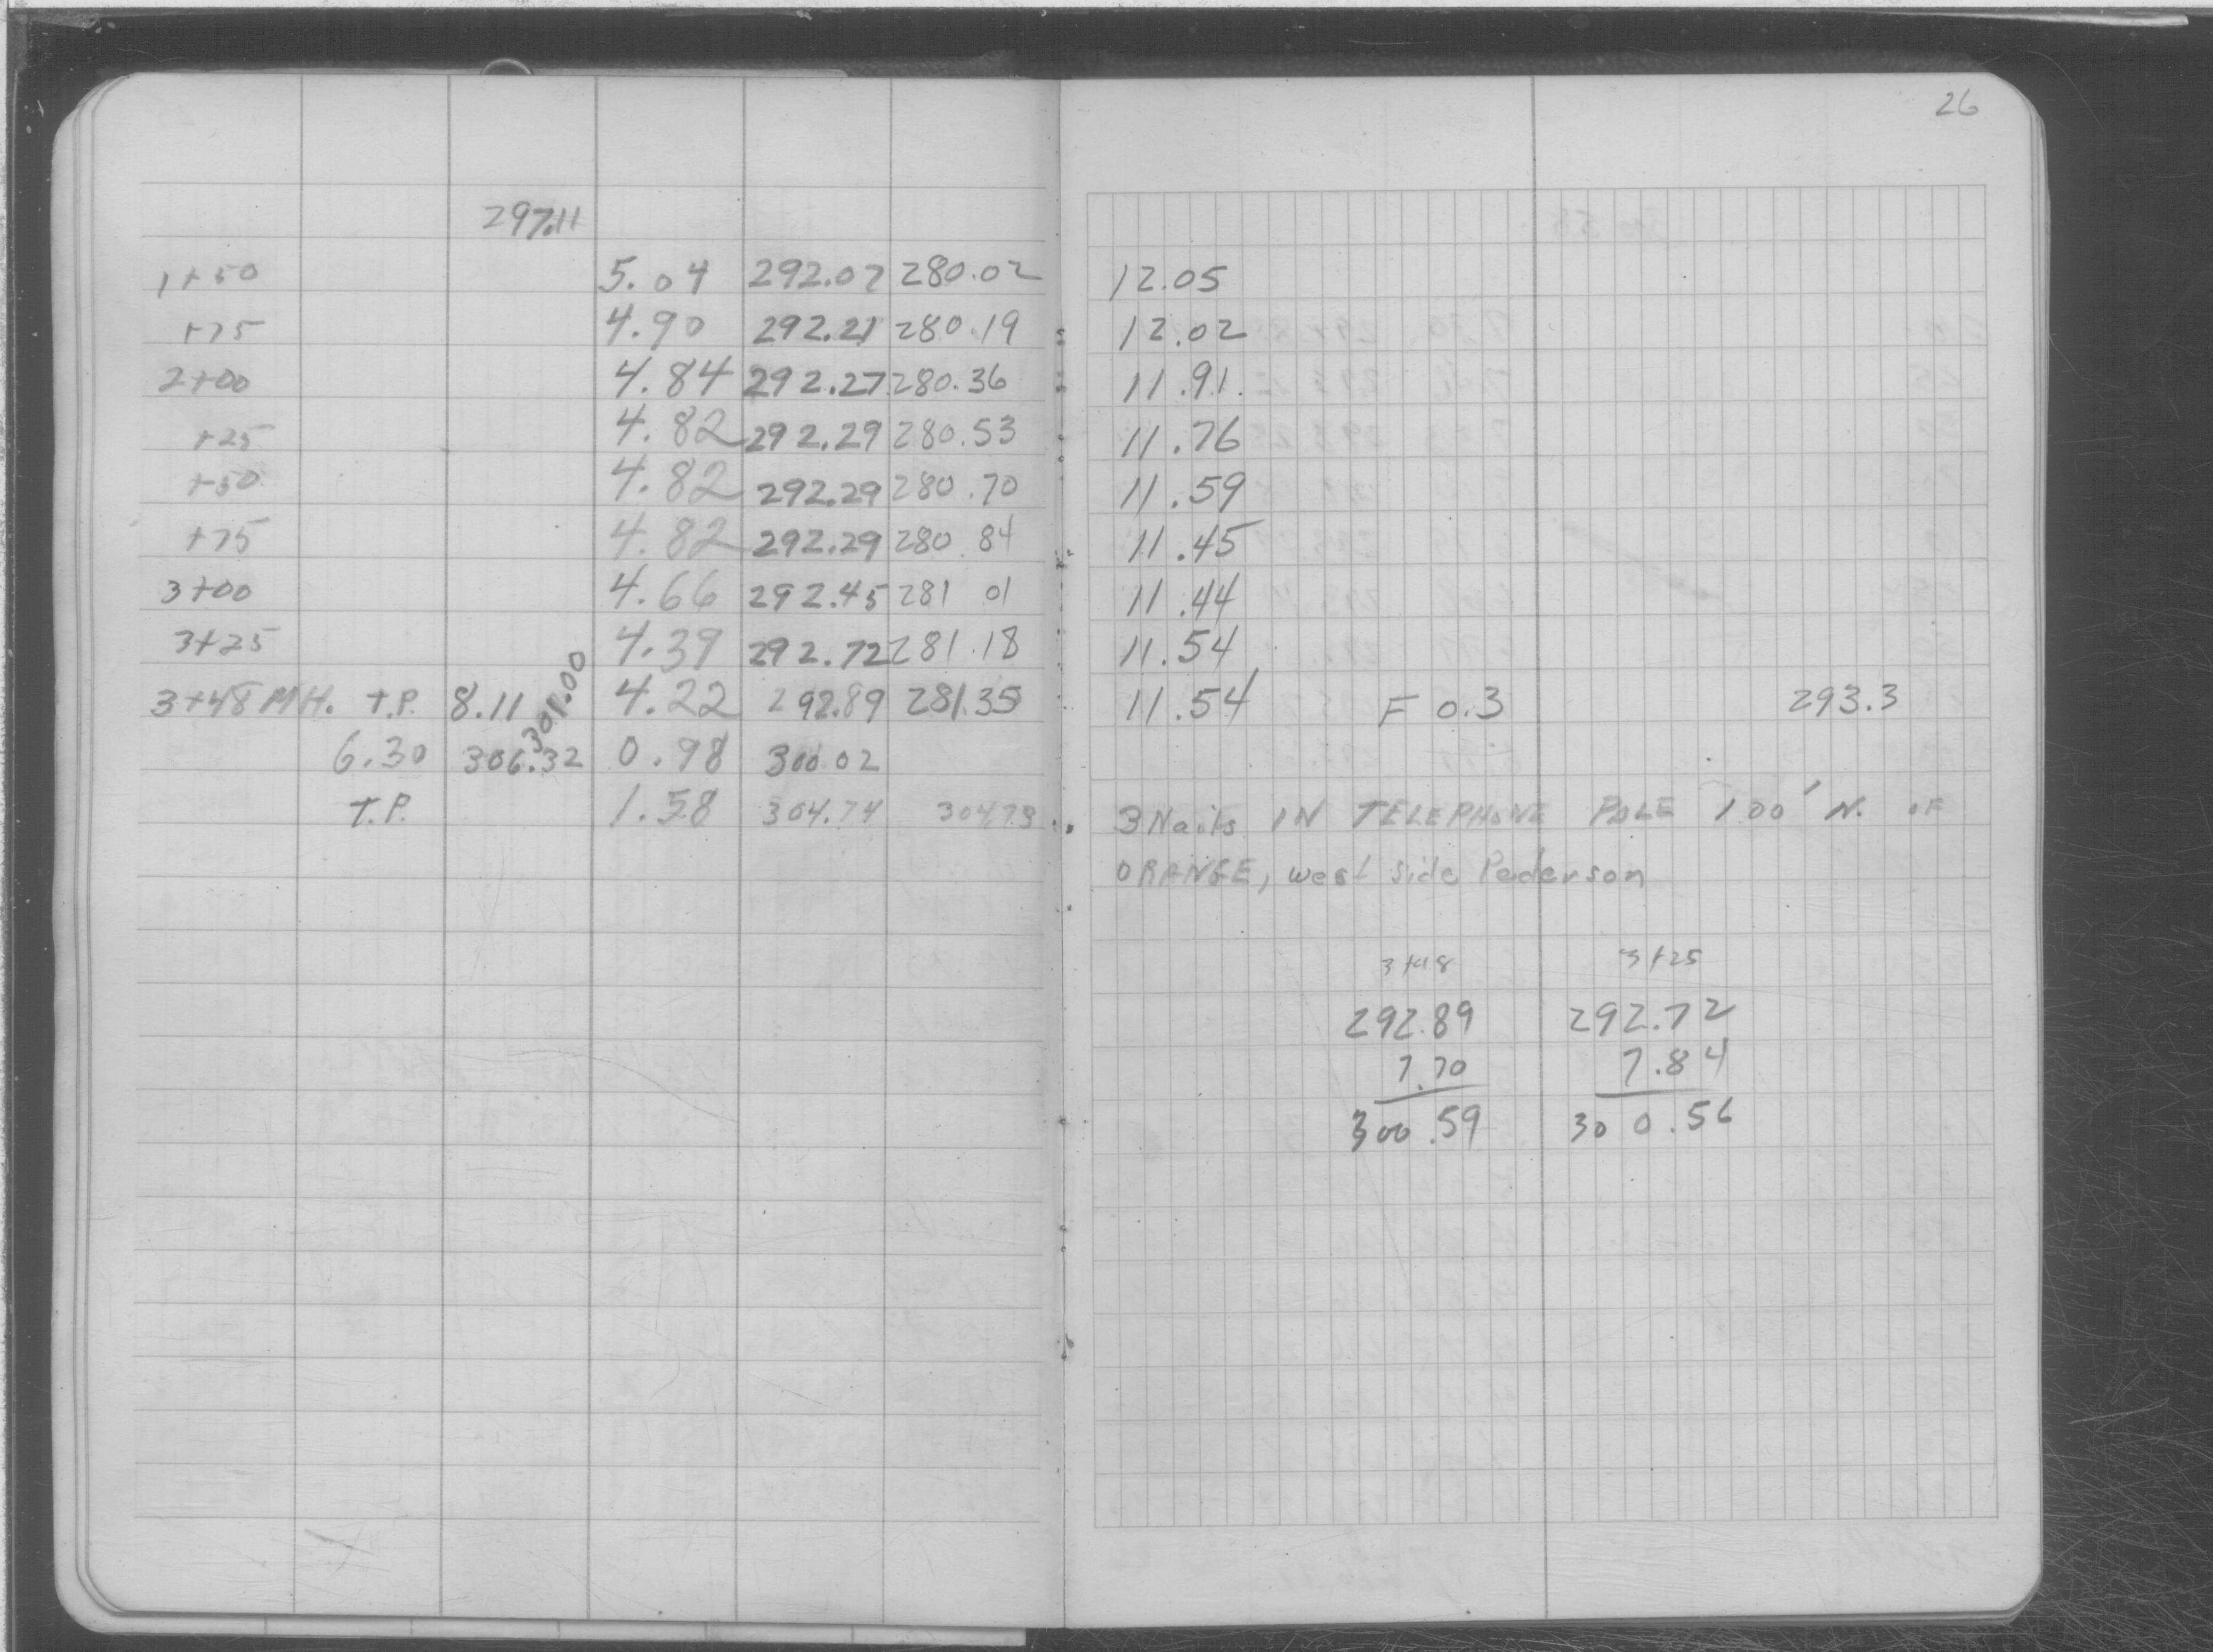 26
297.11
1+50 5.04 292.07 280.02 12.05
+75 4.90 292.21 280.19 12.02
2+00 4.84 292.27 280.36 11.91.
+25 4.82 292.29 280.53 11.76
+50 4.82 292.29 280.70 11.59
+75 4.82 292.29 280.84 11.45
3+00 4.66 292.45 281 01 11.44
3+25 4.39 292.72 281.18 11.54
3+48 MH. T.P. 8.11 301.00 4.22 292.89 281.35 11.54 F 0.3 293.3
6.30 306.32 0.98 300.02
T.P. 1.58 304.74 304.73 3 Nails IN TELEPHONE POLE 100' N. OF
ORANGE, west side Pederson
3+48 3+25
292.89 292.72
7.70 7.84
300.59 300.56